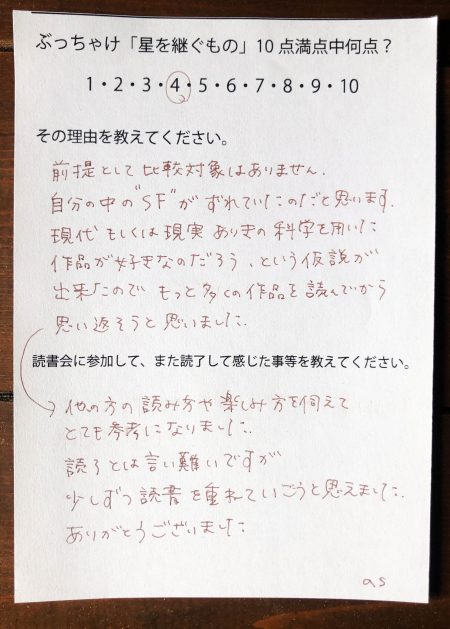 ぶっちゃけ「星を継ぐもの」10点満点中何点？
1・2・3・4・5・6・7・8・9・10
その理由を教えてください。
前提として比較対象はありません.
自分の中の"SF"がずれていたのだと思います.
現代もしくは現実ありきの科学を用いた
作品が好きなのだろう、という仮説が
出来たので もっと多くの作品を読んでから
思い返そうと思いました.
読書会に参加して、また読了して感じた事等を教えてください。
他の方の読み方や楽しみ方を伺えて
とても参考になりました.
読了とは言い難いですが
少しずつ読書を重ねていこうと思えました.
ありがとうございました
as